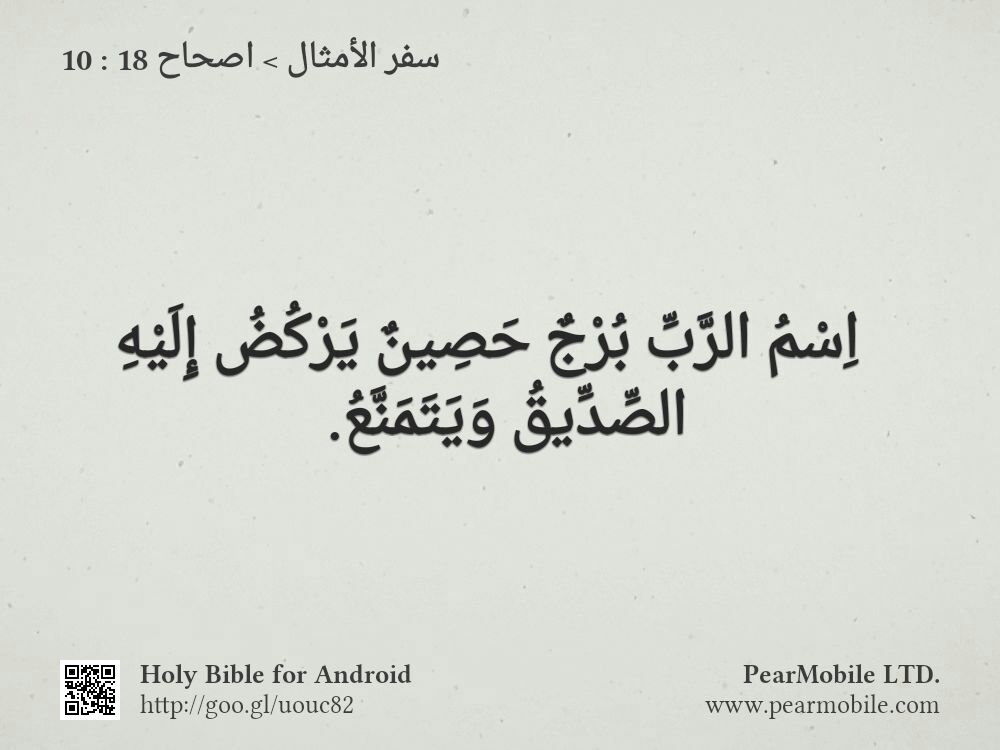 سفر الأمثال > اصحاح 18 : 10
اِسْمُ الرَّبِّ بُرْجٌ حَصِينٌ يَرْكُضُ إِلَيْهِ
الصِّدِّيقُ وَيَتَمَنَّعُ.
Holy Bible for Android
http://goo.gl/uouc82
PearMobile LTD.
www.pearmobile.com